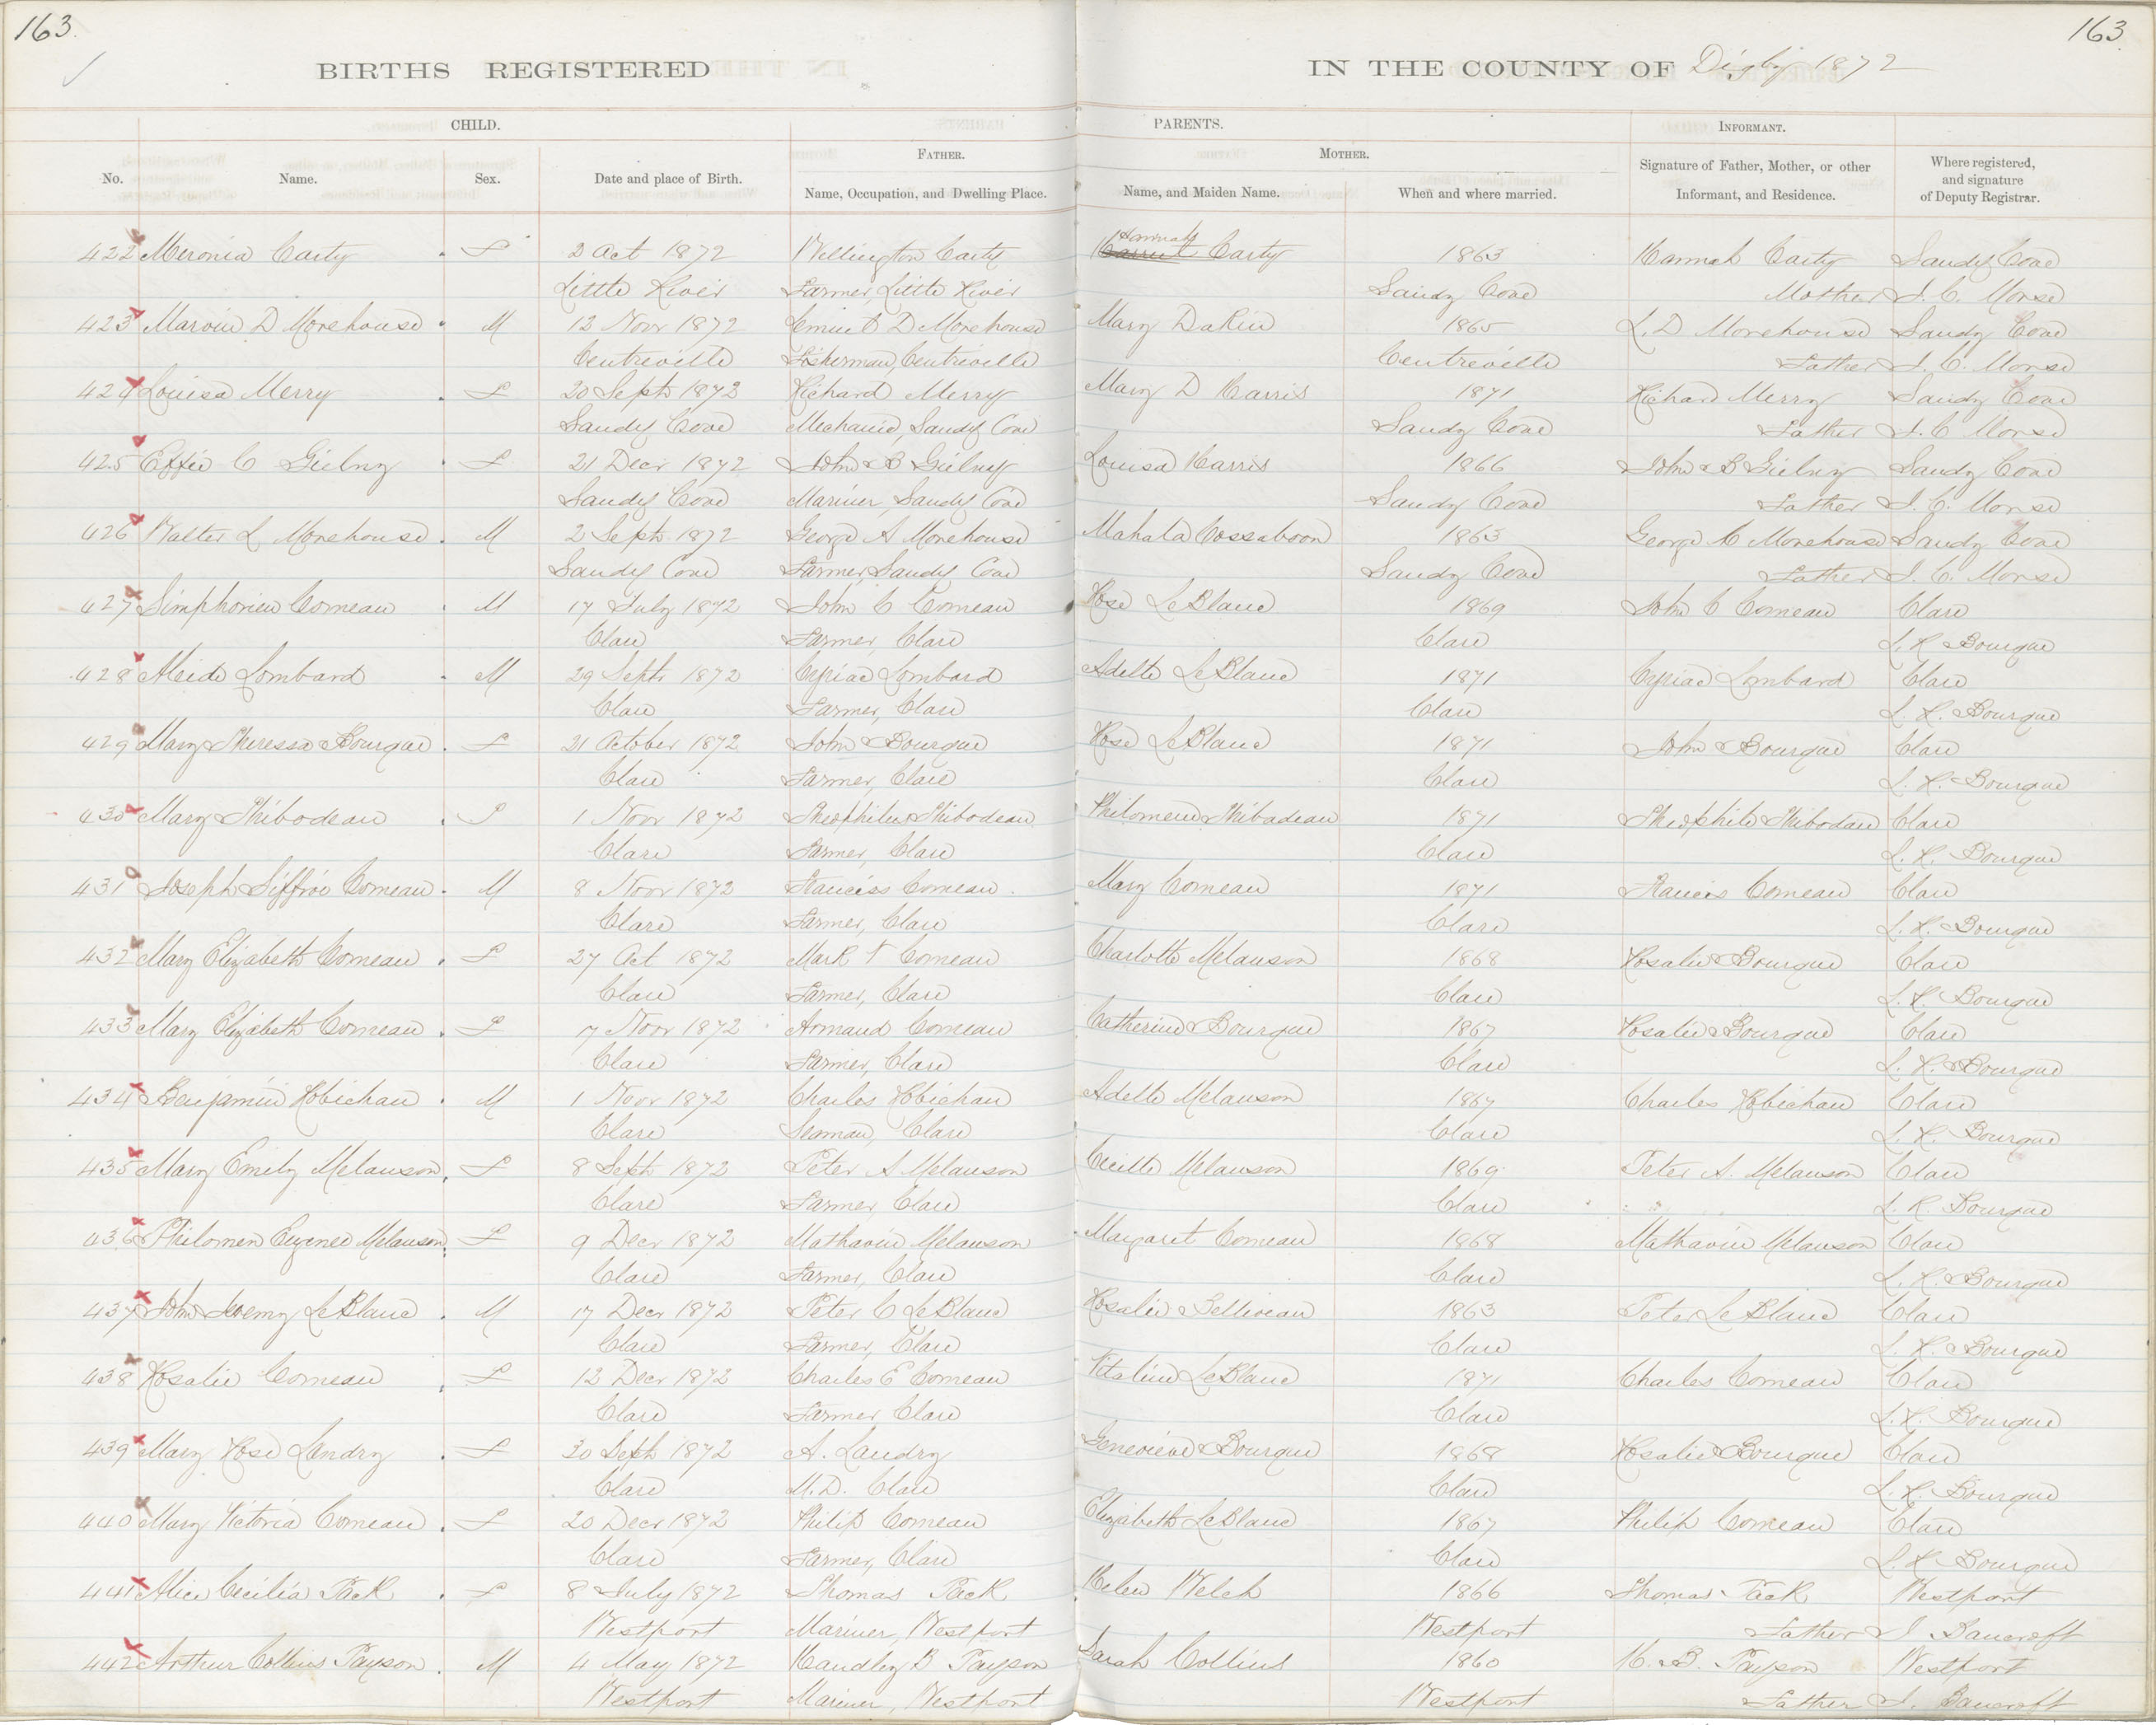 163.
163.
BIRTHS REGISTERED IN THE COUNTY OF Digby 1872
CHILD. PARENTS. INFORMANT.
FATHER. MOTHER.
No. Name. Sex. Date and place of Birth. Name, Occupation, and Dwelling Place. Name, and Maiden Name. When and where married. Signature of Father, Mother, or other Informant, and Residence. Where registered, and signature of Deputy Registrar.
422 Meronia Carty F 2 Oct 1872 Wellington Carty Hannah Carty 1863 Hannah Carty Sandy Cove
Little River Farmer, Little River Sandy Cove Mother J. C. Morse
423 Marvin D Morehouse M 12 Novr 1872 Lemuel D Morehouse Mary Dakin 1865 L. D Morehouse Sandy Cove
Centreville Fisherman, Centreville Centreville Father J. C. Morse
424 Louisa Merry F 20 Sept 1872 Richard Merry Mary D Harris 1871 Richard Merry Sandy Cove
Sandy Cove Mechanic, Sandy Cove Sandy Cove Father J. C Morse
425 Effie C Gielny F 21 Decr 1872 John B Gielny Louisa Harris 1866 John B Gielny Sandy Cove
Sandy Cove Mariner, Sandy Cove Sandy Cove Father J. C. Morse
426 Walter L Morehouse M 2 Sept 1872 George A Morehouse Mahala Cossaboon 1863 George Morehouse Sandy Cove
Sandy Cove Farmer, Sandy Cove Sandy Cove Father J. C. Morse
427 Simphorien Comeau M 17 July 1872 John C Comeau Rose LeBlanc 1869 John C Comeau Clare
Clare Farmer, Clare Clare L. H Bourque
428 Alcide Lombard M 29 Sept 1872 Cyriac Lombard Adelle LeBlanc 1871 Cyriac Lombard Clare
Clare Farmer, Clare Clare L. H. Bourque
429 Mary Theressa Bourque F 21 October 1872 John Bourque Rose LeBlanc 1871 John Bourque Clare
Clare Farmer, Clare Clare L. H. Bourque
430 Mary Thibodeau F 1 Novr 1872 Theophilus Thibodeau Philomene Thibadeau 1871 Theophile Thibodau Clare
Clare Farmer, Clare Clare L. H. Bourque
431 Joseph Siffroi Comeau M 8 Novr 1872 Franciss Comeau Mary Comeau 1871 Francis Comeau Clare
Clare Farmer, Clare Clare L. H. Bourque
432 Mary Elizabeth Comeau F 27 Oct 1872 Mark Comeau Charlotte Melanson 1868 Rosalie Bourque Clare
Clare Farmer, Clare Clare L. H. Bourque
433 Mary Elizabeth Comeau F 7 Novr 1872 Armand Comeau Catherine Bourque 1867 Rosalie Bourque Clare
Clare Farmer, Clare Clare L. H. Bourque
434 Benjamin Robichau M 1 Novr 1872 Charles Robichau Adelle Melanson 1867 Charles Robichau Clare
Clare Seaman, Clare Clare L. H. Bourque
435 Mary Emily Melanson F 8 Sept 1872 Peter A Melanson Cecille Melanson 1869 Peter A. Melanson Clare
Clare Farmer Clare Clare L. H. Bourque
436 Philomen Eugenee Melanson F 9 Decr 1872 Mathavin Melanson Margaret Comeau 1868 Mathavin Melanson Clare
Clare Farmer, Clare Clare L. H. Bourque
437 John Jeremy LeBlanc M 17 Decr 1872 Peter C LeBlanc Rosalie Belliveau 1863 Peter LeBlanc Clare
Clare Farmer, Clare Clare L. H. Bourque
438 Rosalie Comeau F 12 Decr 1872 Charles E Comeau Vitaline LeBlanc 1871 Charles Comeau Clare
Clare Farmer Clare Clare L. H. Bourque
439 Mary Rose Landry F 30 Sept 1872 A. Landry Genevieve Bourque 1868 Rosalie Bourque Clare
Clare M.D. Clare Clare L. H. Bourque
440 Mary Victoria Comeau F 20 Decr 1872 Philip Comeau Elizabeth LeBlanc 1867 Philip Comeau Clare
Clare Farmer, Clare Clare L. H. Bourque
441 Alice Cecilia Pack F 8 July 1872 Thomas Pack Helen Welch 1866 Thomas Pack Westport
Westport Mariner, Westport Westport Father J Bancroft
442 Arthur Collins Payson M 4 May 1872 Handley B Payson Sarah Collins 1860 H. B. Payson Westport
Westport Mariner, Westport Westport Father J. Bancroft